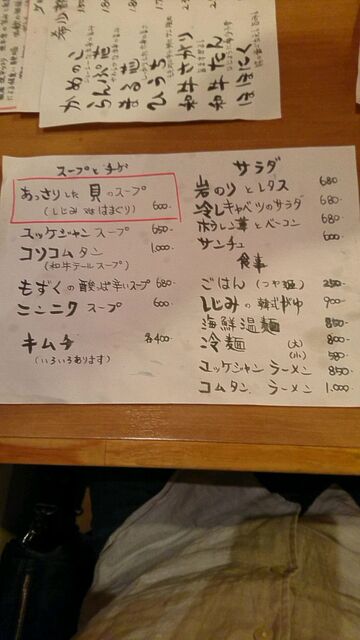 かめのこ
らんぷ芯
まる芯
ひうち
和牛さがり
和牛たん
ほほにく
スープとチゲ
あっさりした貝のスープ
(しじみ又ははまぐり) 600
ユッケジャンスープ 650
コソコムタン 1,000
(和牛テールスープ)
もずくの酸っぱ辛いスープ 680
ニンニクスープ 600
キムチ 各400
(いろいろあります)
サラダ
岩のりとレタス 680
冷しキャベツのサラダ 680
ホウレン草とベーコン 680
サンチュ 600
食事
ごはん(つや姫) 250
しじみの韓式がゆ 900
海鮮温麺 850
冷麺 (大) 800
(小) 580
ユッケジャンラーメン 850
コムタンラーメン 1,000